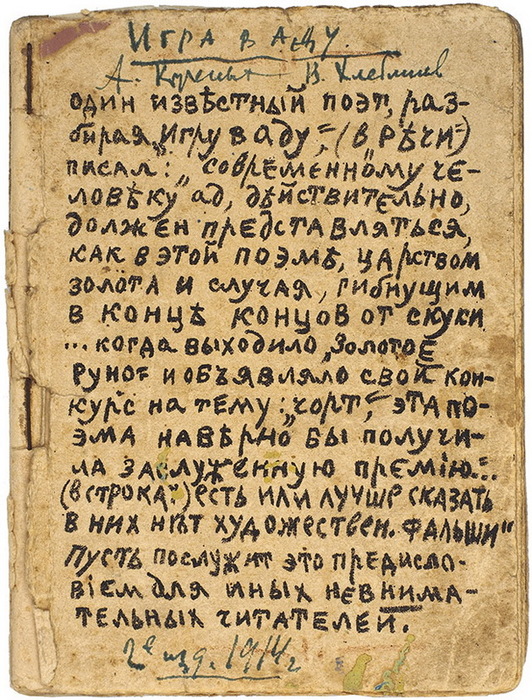 Игра в аду.
А. Крученых В. Хлебников
один извѣстный поэт, раз-
бирая „Игру в аду“, (в „Рѣчи“)
писал: „современному че-
ловѣку ад, дѣйствительно,
должен представляться,
как в этой поэмѣ, царством
золота и случая, гибнущим
в концѣ концов от скуки
... когда выходило „Золотое
Руно“ и объявляло свой кон-
курс на тему: „чорт“, эта по-
эма навѣрно бы получи-
ла заслуженную премію...
(в строка“) есть или лучше сказать
в них нѣт художествен. фальши“
пусть послужит это предисло-
віем для иных невнима-
тельных читателей.
2е изд. 1914 г